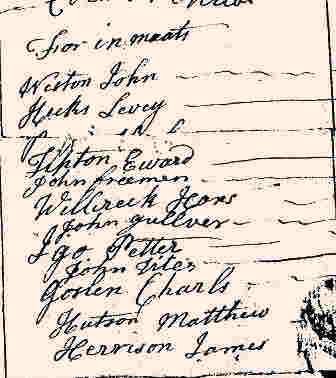 for inmaats
Weston John
Hicks Levey
Tipton Eward
John freemen
Willireck Hans
John gullver
Igo Petter
John Iiles
Gosien Charls
Hutson Matthew
Herrison James